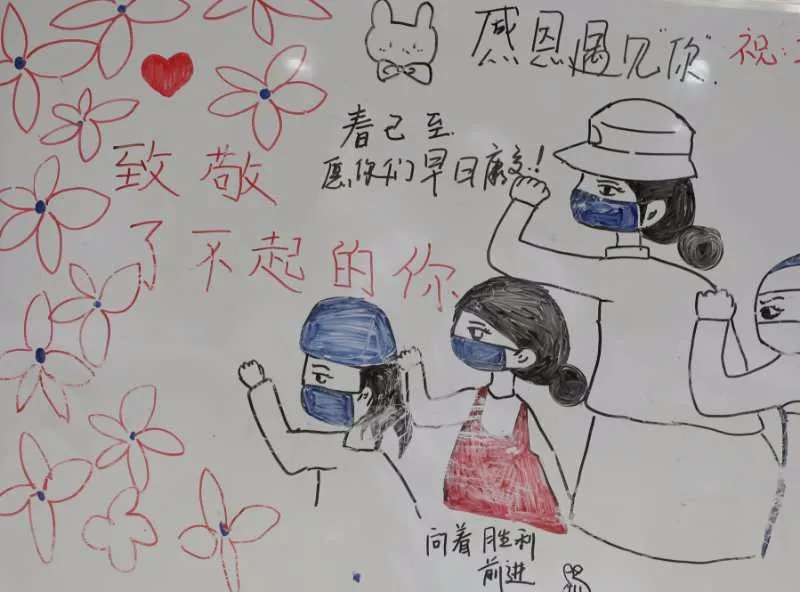 感恩遇见"你"
祝:
春已至
愿你们早日康复!!
致敬
了不起的你
向着胜利
前进